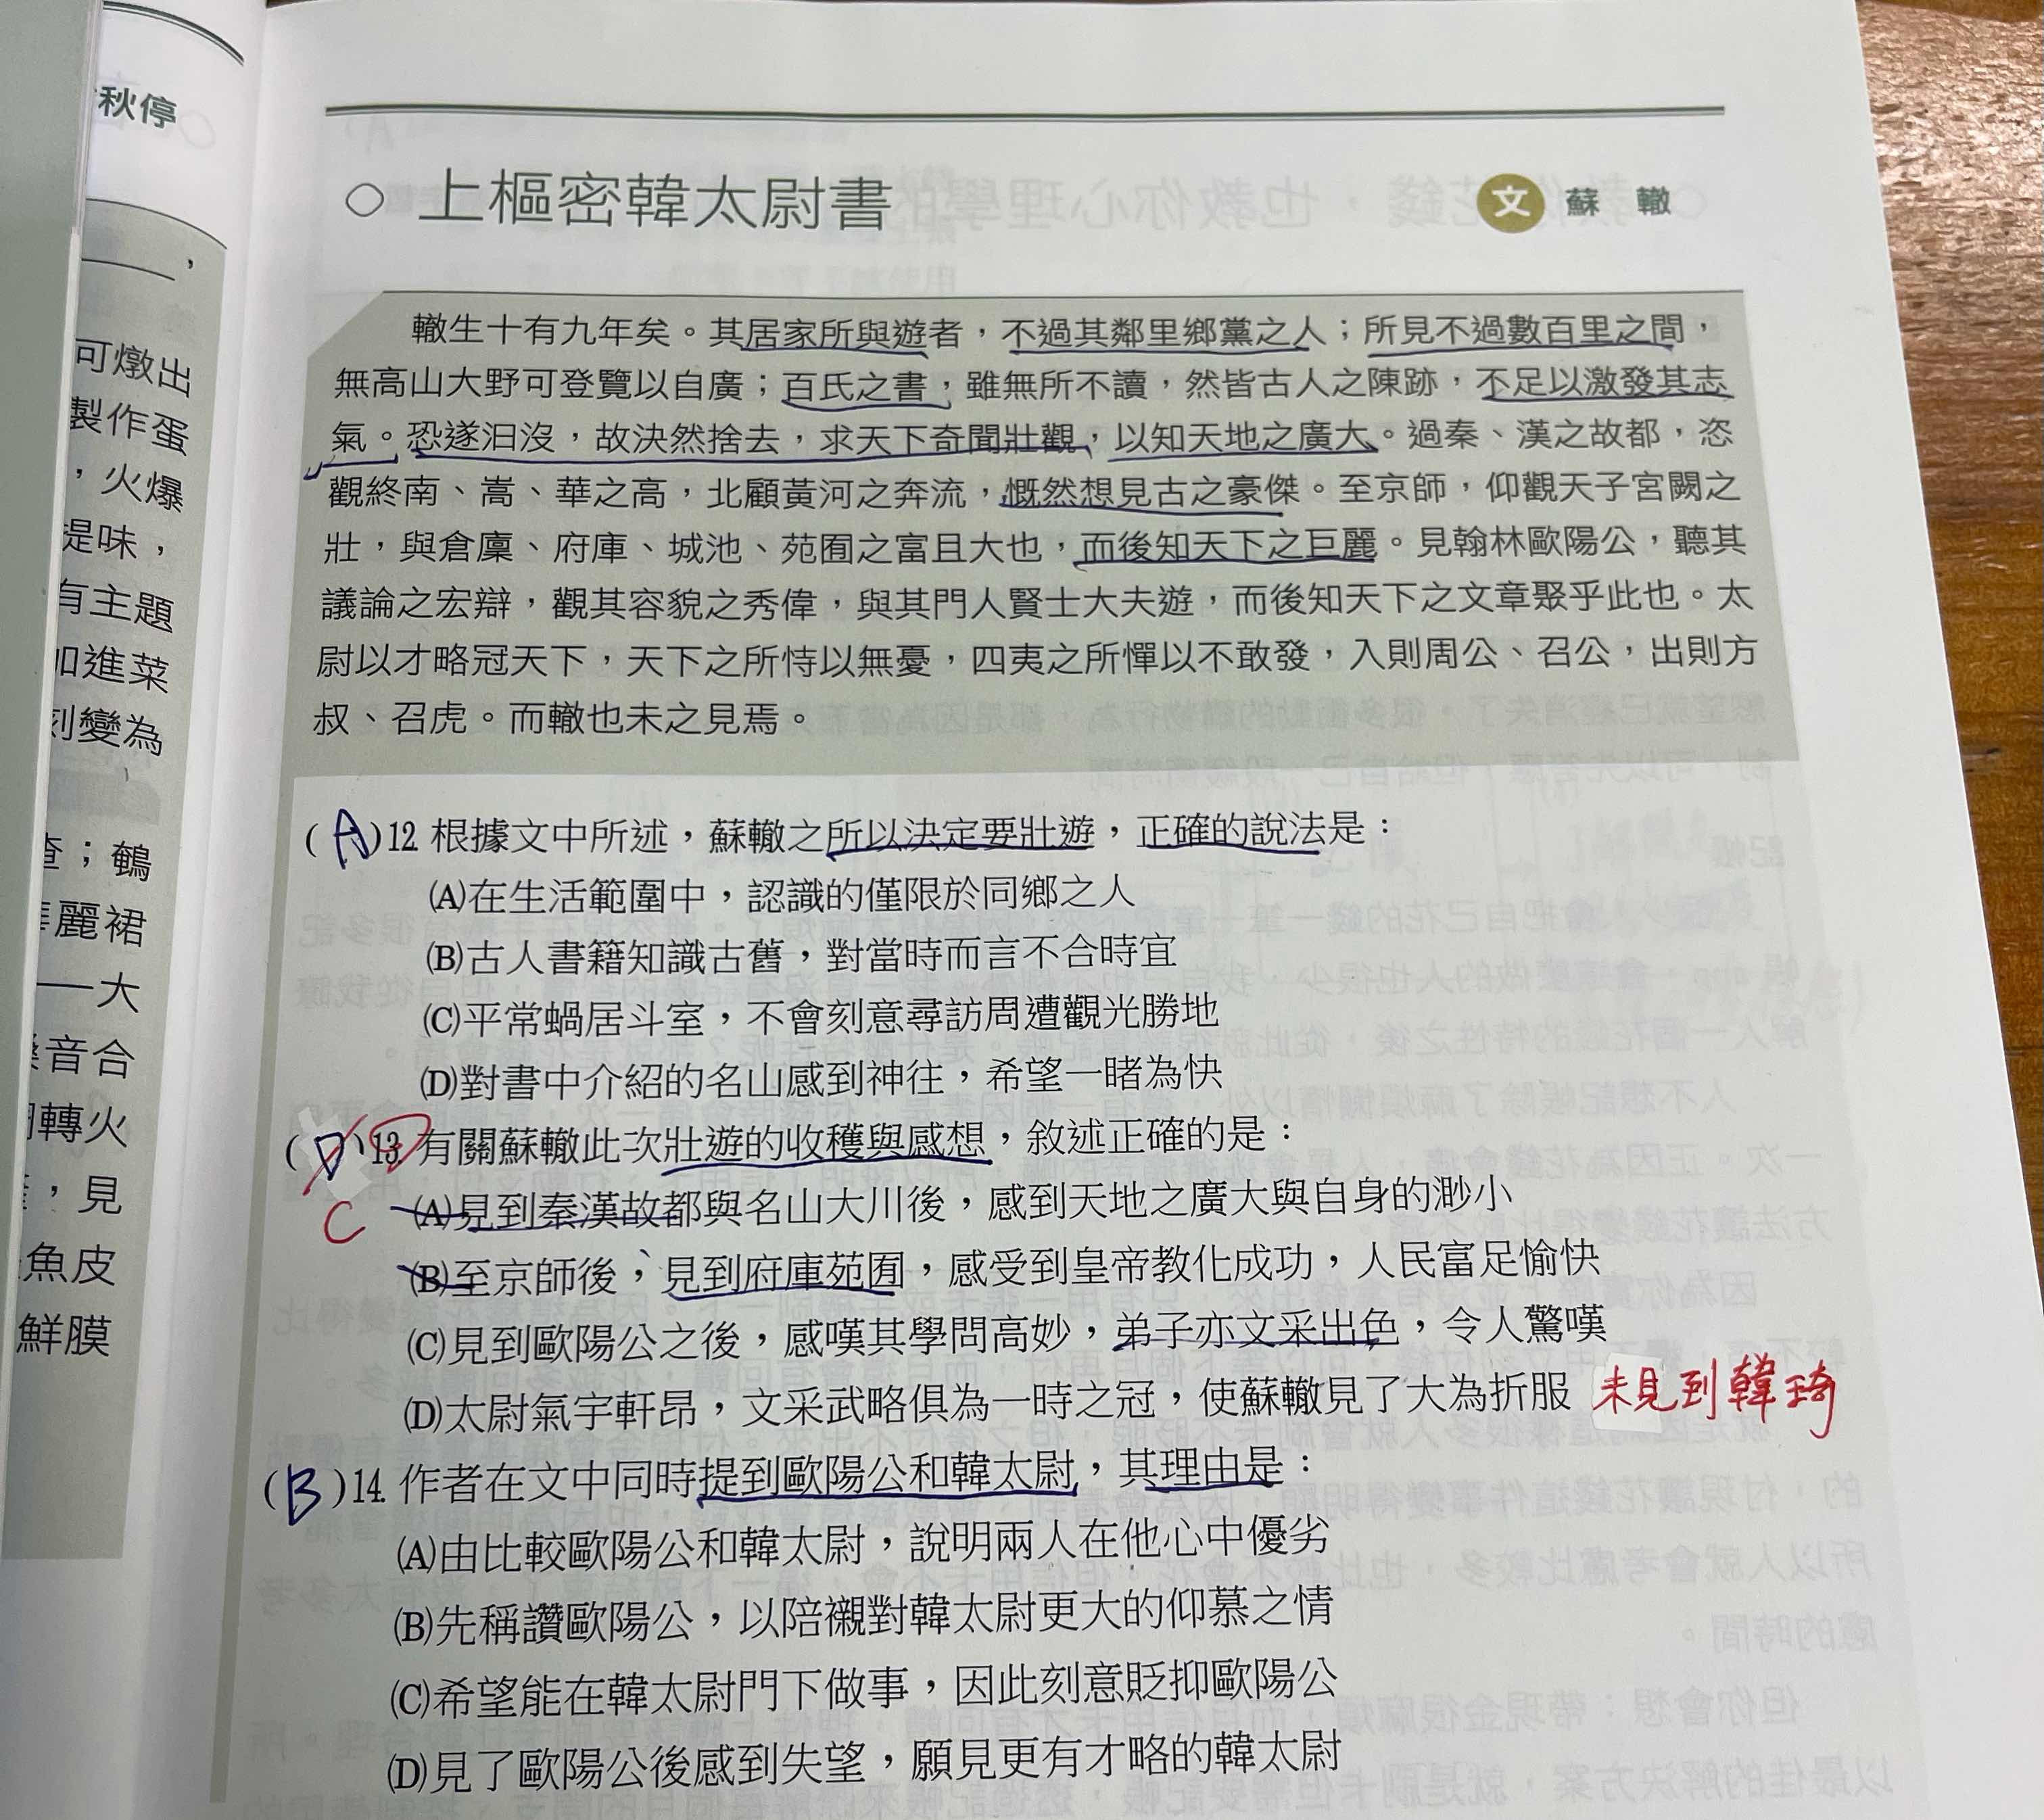 秋停
可燉出
製作蛋
，火爆
提味，
有主題
加進菜
刻變為
查；鵪
麗裙
──大
音合
轉火
，見
魚皮
鮮膜
○ 上樞密韓太尉書
文 蘇 轍
轍生十有九年矣。其居家所與遊者，不過其鄰里鄉黨之人；所見不過數百里之間，
無高山大野可登覽以自廣；百氏之書，雖無所不讀，然皆古人之陳跡，不足以激發其志
氣。恐遂汩沒，故決然捨去，求天下奇聞壯觀，以知天地之廣大。過秦、漢之故都，恣
觀終南、嵩、華之高，北顧黃河之奔流，慨然想見古之豪傑。至京師，仰觀天子宮闕之
壯，與倉廩、府庫、城池、苑囿之富且大也，而後知天下之巨麗。見翰林歐陽公，聽其
議論之宏辯，觀其容貌之秀偉，與其門人賢士大夫遊，而後知天下之文章聚乎此也。太
尉以才略冠天下，天下之所恃以無憂，四夷之所憚以不敢發，入則周公、召公，出則方
叔、召虎。而轍也未之見焉。
(A)12. 根據文中所述，蘇轍之所以決定要壯遊，正確的說法是：
(A)在生活範圍中，認識的僅限於同鄉之人
(B)古人書籍知識古舊，對當時而言不合時宜
(C)平常蝸居斗室，不會刻意尋訪周遭觀光勝地
(D)對書中介紹的名山感到神往，希望一睹為快
(D)13. 有關蘇轍此次壯遊的收穫與感想，敘述正確的是：
C
(A)見到秦漢故都與名山大川後，感到天地之廣大與自身的渺小
(B)至京師後，見到府庫苑囿，感受到皇帝教化成功，人民富足愉快
(C)見到歐陽公之後，感嘆其學問高妙，弟子亦文采出色，令人驚嘆
(D)太尉氣宇軒昂，文采武略俱為一時之冠，使蘇轍見了大為折服 未見到韓琦
(B)14. 作者在文中同時提到歐陽公和韓太尉，其理由是：
(A)由比較歐陽公和韓太尉，說明兩人在他心中優劣
(B)先稱讚歐陽公，以陪襯對韓太尉更大的仰慕之情
(C)希望能在韓太尉門下做事，因此刻意貶抑歐陽公
(D)見了歐陽公後感到失望，願見更有才略的韓太尉